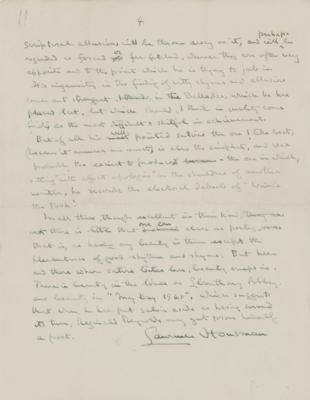 11
4
perhaps
scriptural allusions will be thrown away on it, and will be
regarded as forced or far fetched, whereas they are often very
apposite and to the point which he is trying to
His ingenuity in the finding of witty rhymes and allusions
come out strongest, in the Ballades, which he has
placed last, but which should, I think in
as the most difficult & skilful in achievement.
But of all his well pointed satires the one I like best,
(because it amuses me most) is also the simplest, and was
probably the easiest to produce - the one in which,
sitting with abject apologies on the shoulders of another
writer, he records the electoral defeats of
the Pooh".
In all these, though excellent in their kind,
there is little that one can class as poetry, more
that is, as having any beauty in them except the
pleasantness of good rhythm and rhyme. But here
and there where satire lets love, beauty creeps in.
There is beauty in the lines on Abbey,
and beauty, in "May Day 1940", which suggests
that when he has put satire aside as having served
its turn, Reginald Reynolds may yet prove himself
a poet.
Laurence Housman